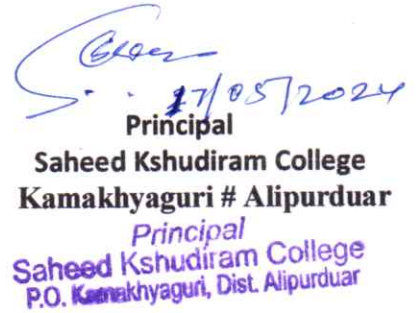 17/05/2024
Principal
Saheed Kshudiram College
Kamakhyaguri # Alipurduar
Principal
Saheed Kshudiram College
P.O. Kamakhyaguri, Dist. Alipurduar